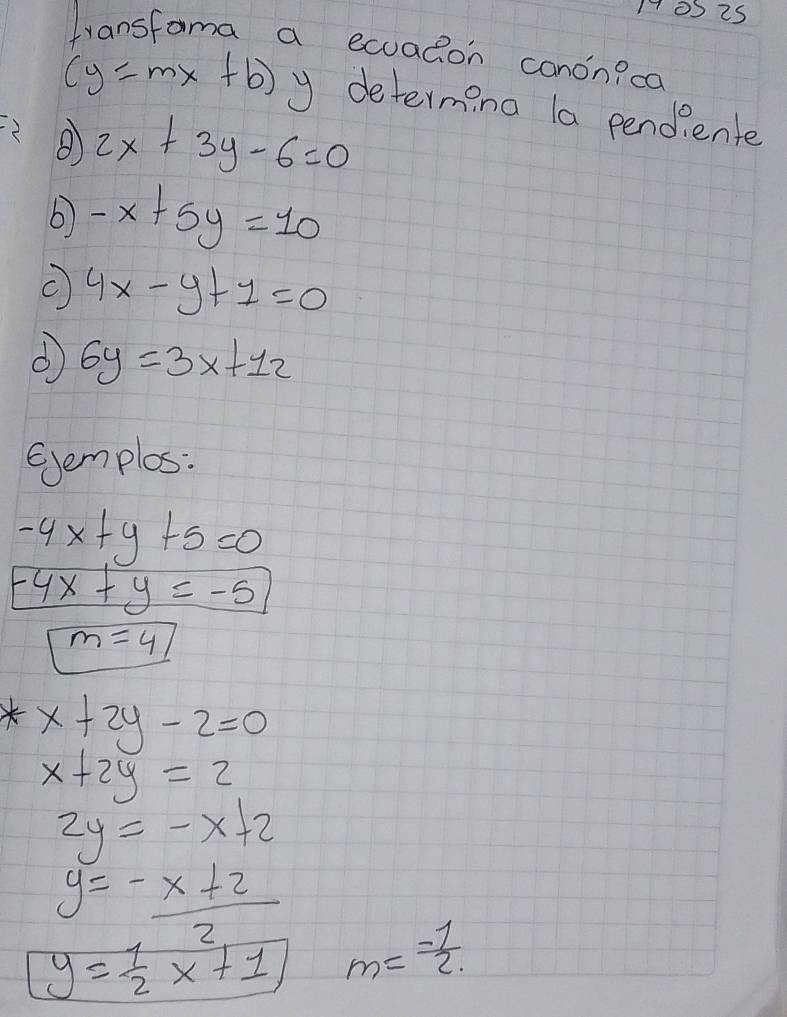 14 05 25
transfoma a ecuación canónica
(y=mx+b) y determina la pendiente
a) 2x + 3y - 6 = 0
b) -x + 5y = 10
c) 4x - y + 1 = 0
d) 6y = 3x + 12
Ejemplos:
-4x + y + 5 = 0
-4x + y = -5
m = 4
* x + 2y - 2 = 0
x + 2y = 2
2y = -x + 2
y = - x + 2
2
y = 1/2 x + 1 m = -1/2.